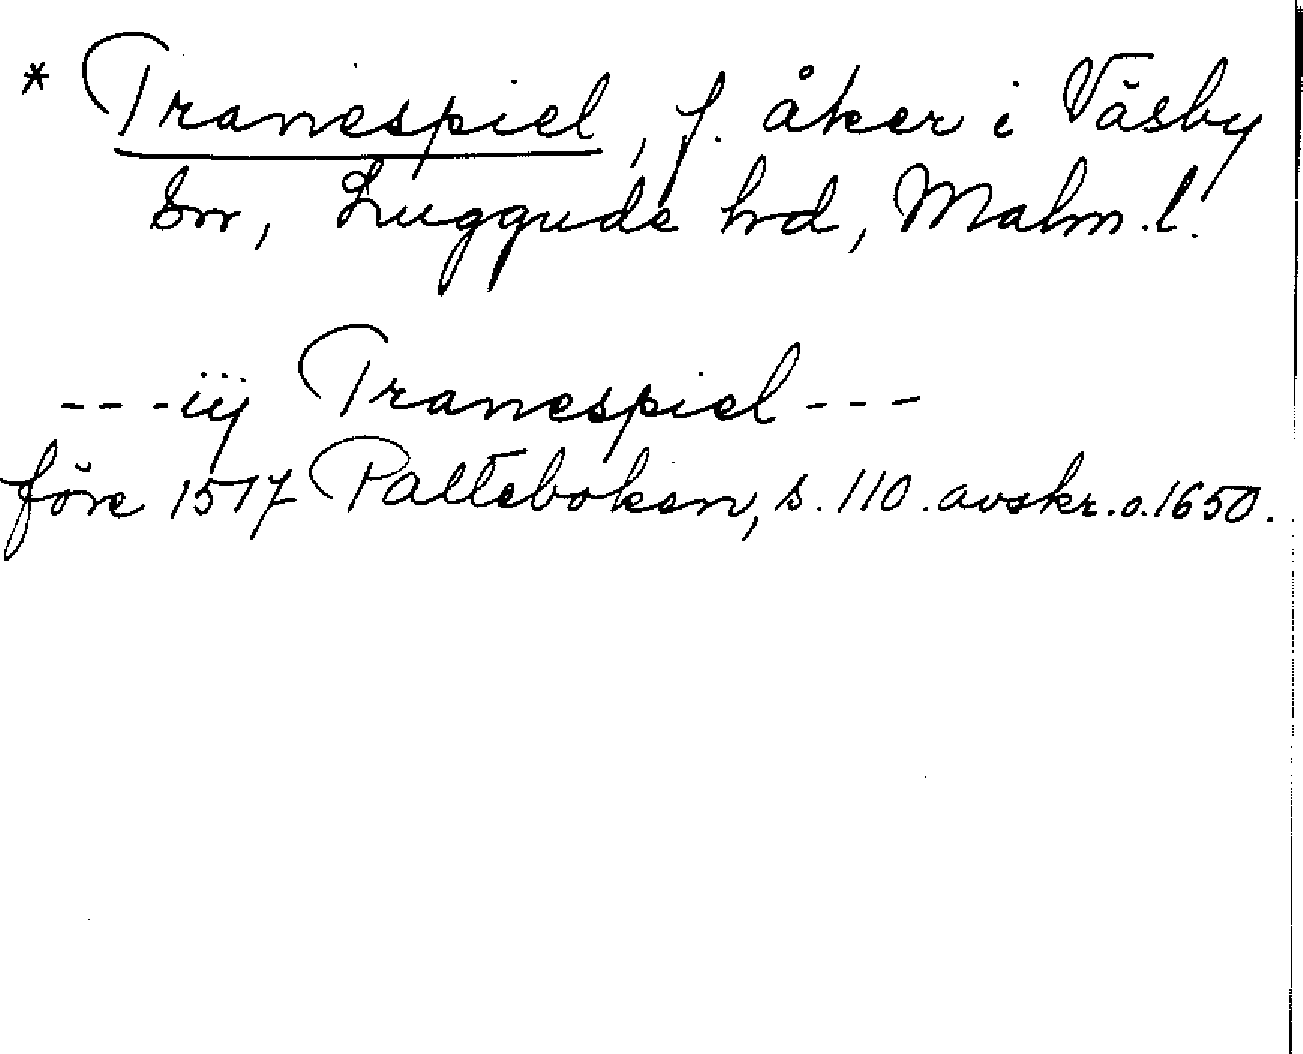 * Tranespiel, f. åker i Väsby
sn, Luggude hd, Malm. l.
---iij Tranespiel---
före 1517 Palteboken, s. 110. avskr. o. 1650.